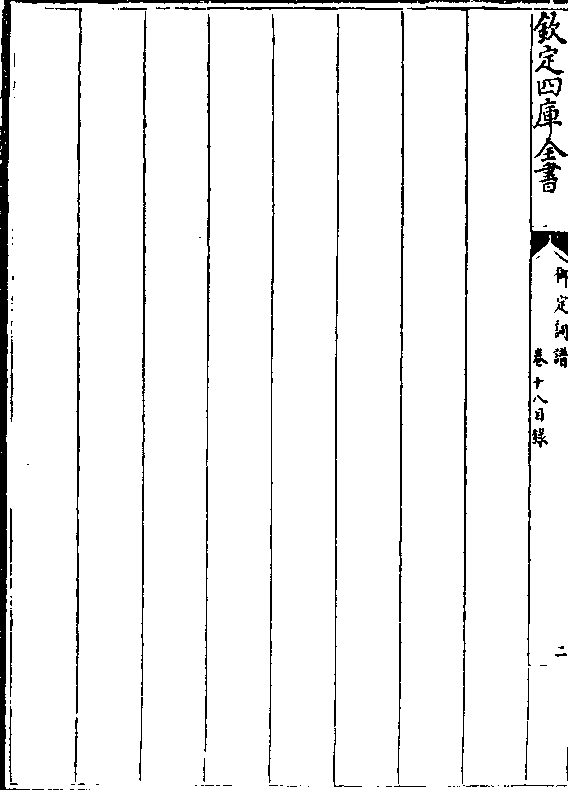 欽定四庫全書
御定詞譜
卷十八目錄
二